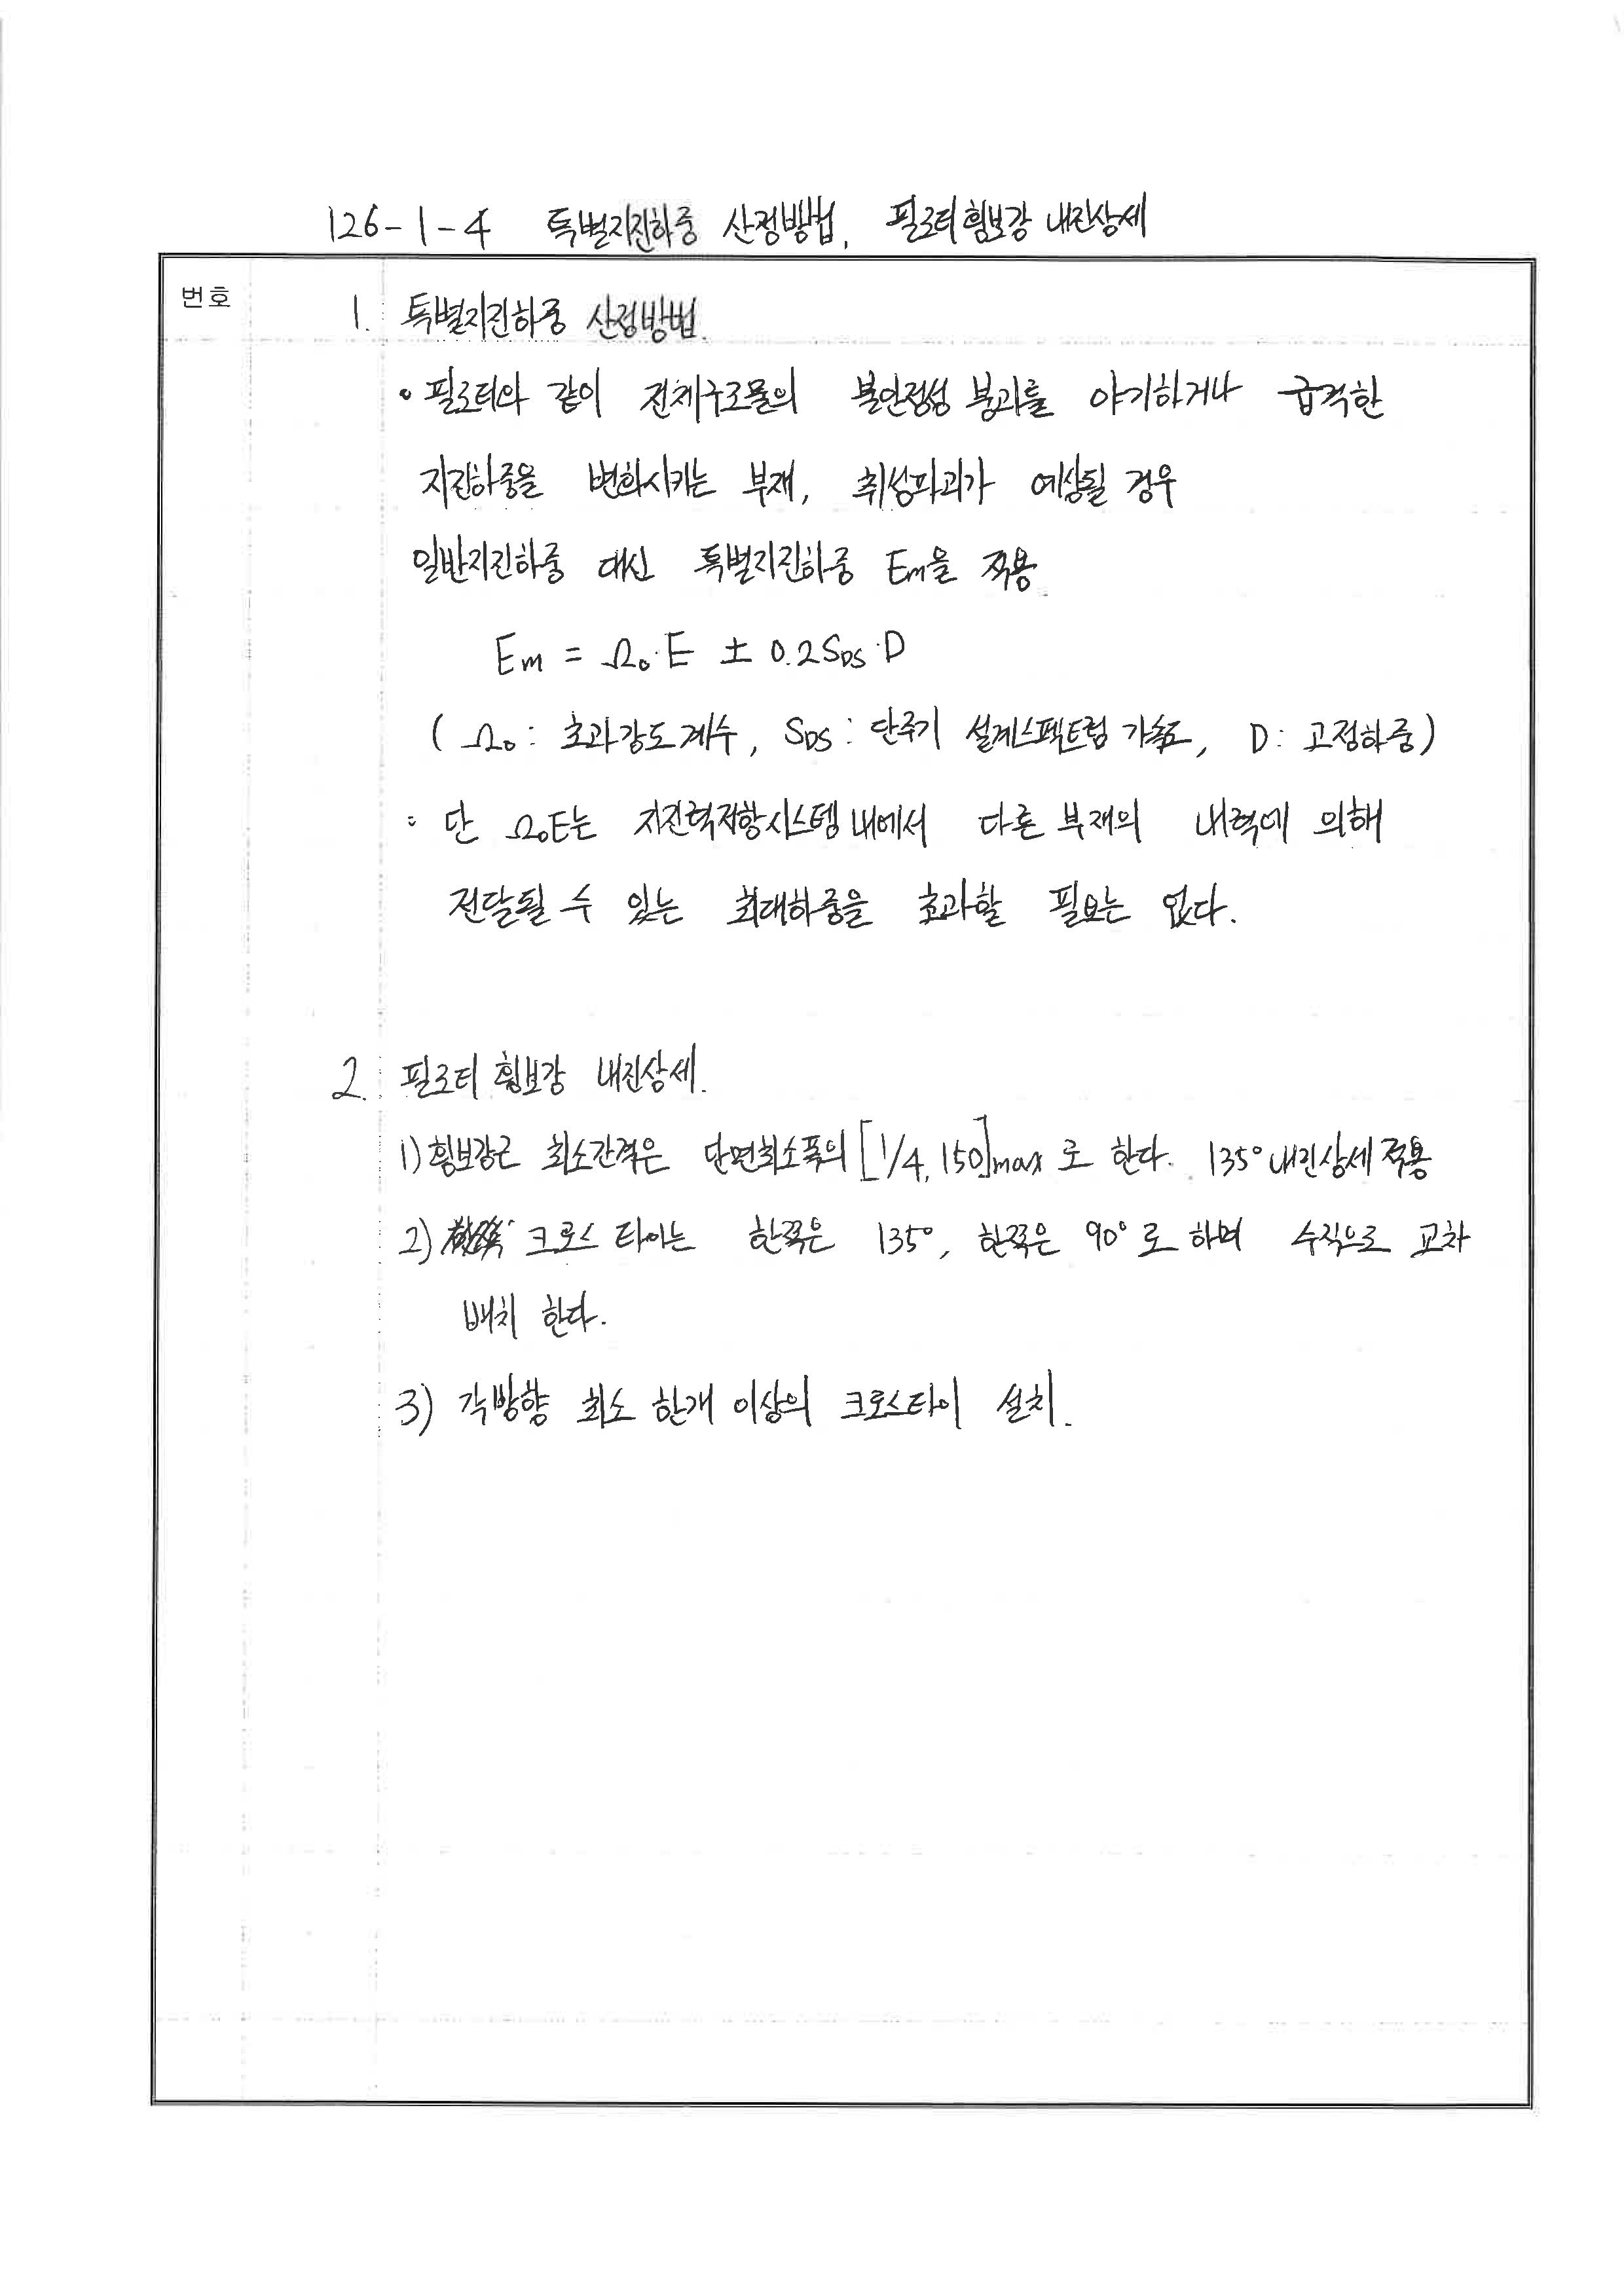 126-1-4 특별지진하중 산정방법, 필로티 횡보강 내진상세
번호
1. 특별지진하중 산정방법.
◦ 필로티와 같이 전체구조물의 불안정성 붕괴를 야기하거나 급격한
지진하중을 변화시키는 부재, 취성파괴가 예상될 경우
일반지진하중 대신 특별지진하중 Em을 적용.
Em = Ω₀·E ± 0.2S_DS·D
( Ω₀ : 초과강도계수, S_DS : 단주기 설계스펙트럼 가속도, D : 고정하중 )
: 단 Ω₀E는 지진력저항시스템 내에서 다른 부재의 내력에 의해
전달될 수 있는 최대하중을 초과할 필요는 없다.
2. 필로티 횡보강 내진상세.
1) 횡보강근 최소간격은 단면최소폭의 [1/4, 150]max 로 한다. 135° 내진상세 적용
2) 크로스 타이는 한쪽은 135°, 한쪽은 90°로 하며 수직으로 교차
배치 한다.
3) 각방향 최소 한개 이상의 크로스타이 설치.